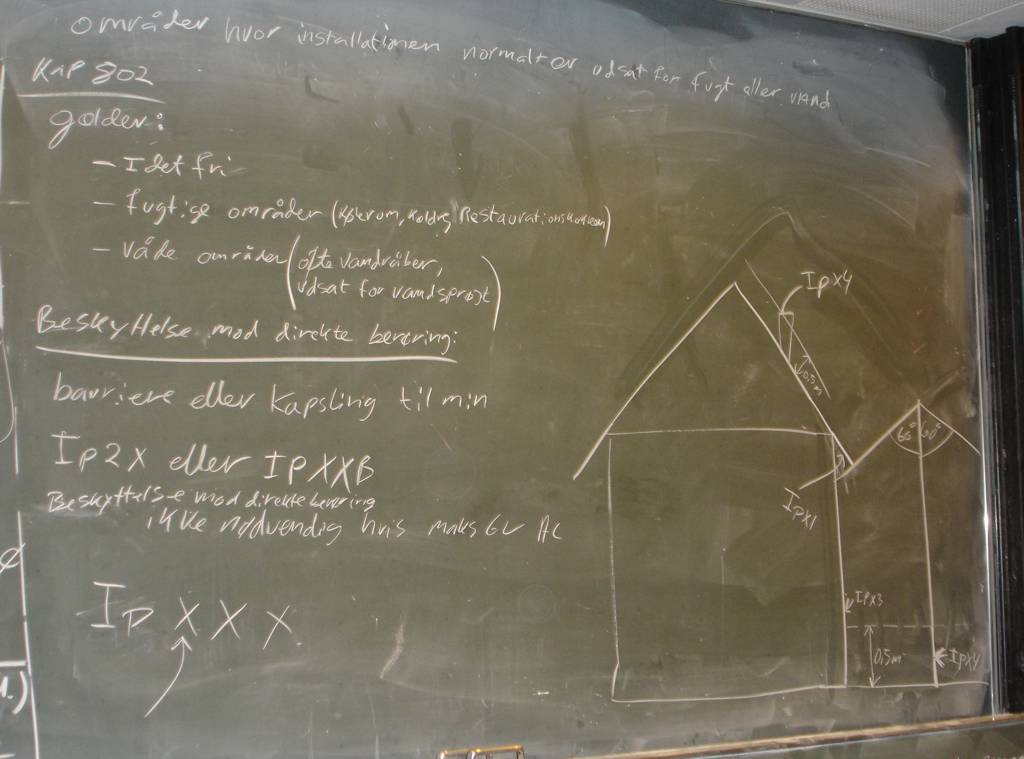 områder hvor installationen normalt er udsat for fugt eller vand
Kap 802
gælder:
- I det fri
- fugtige områder (kølerum, Restaurationskøkken)
- våde områder (ofte vanddråber,
udsat for vandsprøjt)
Beskyttelse mod direkte berøring:
barriere eller Kapsling til min
Ip2x eller IPXXB
Beskyttelse mod direkte berøring
ikke nødvendig hvis maks 6v AC
Ip X X X
IpX4
0,5m
60° 60°
IpX1
IPX3
0,5m
IpX4